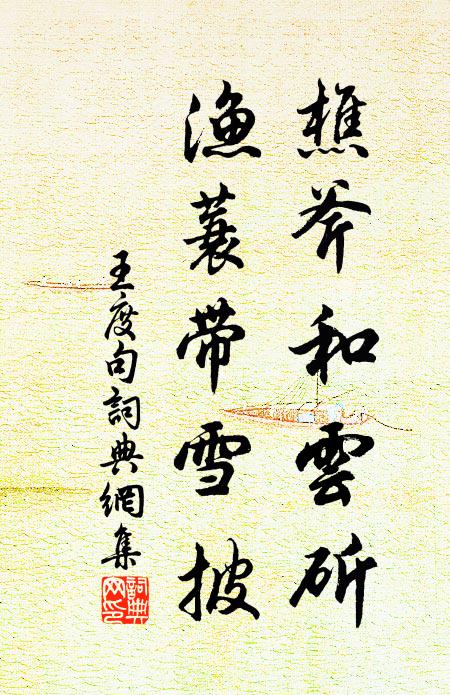 樵斧和雲斫
漁蓑帶雪披
王度句詞典網集
詞典网印